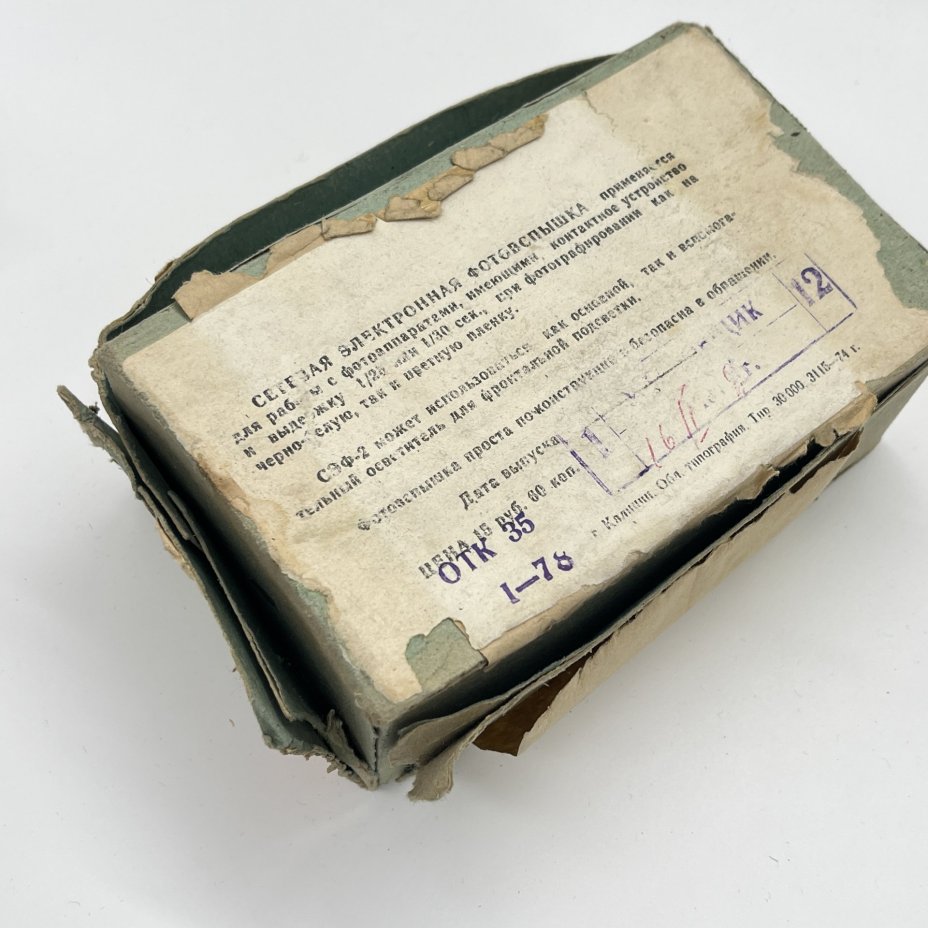 СЕТЕВАЯ ЭЛЕКТРОННАЯ ФОТОВСПЫШКА применяется
для работы с фотоаппаратами, имеющими контактное устройство
и выдержку 1/25 или 1/30 сек., при фотографировании как на
черно-белую, так и цветную пленку.
СЭФ-2 может использоваться как основной, так и вспомога-
тельный осветитель для фронтальной подсветки.
Фотовспышка проста по конструкции и безопасна в обращении.
Дата выпуска
ЩИК 12
1
ЦЕНА 15 руб. 60 коп.
г. Калинин. Обл. типография. Тир. 30 000. 3115—74 г.
ОТК 35
I—78